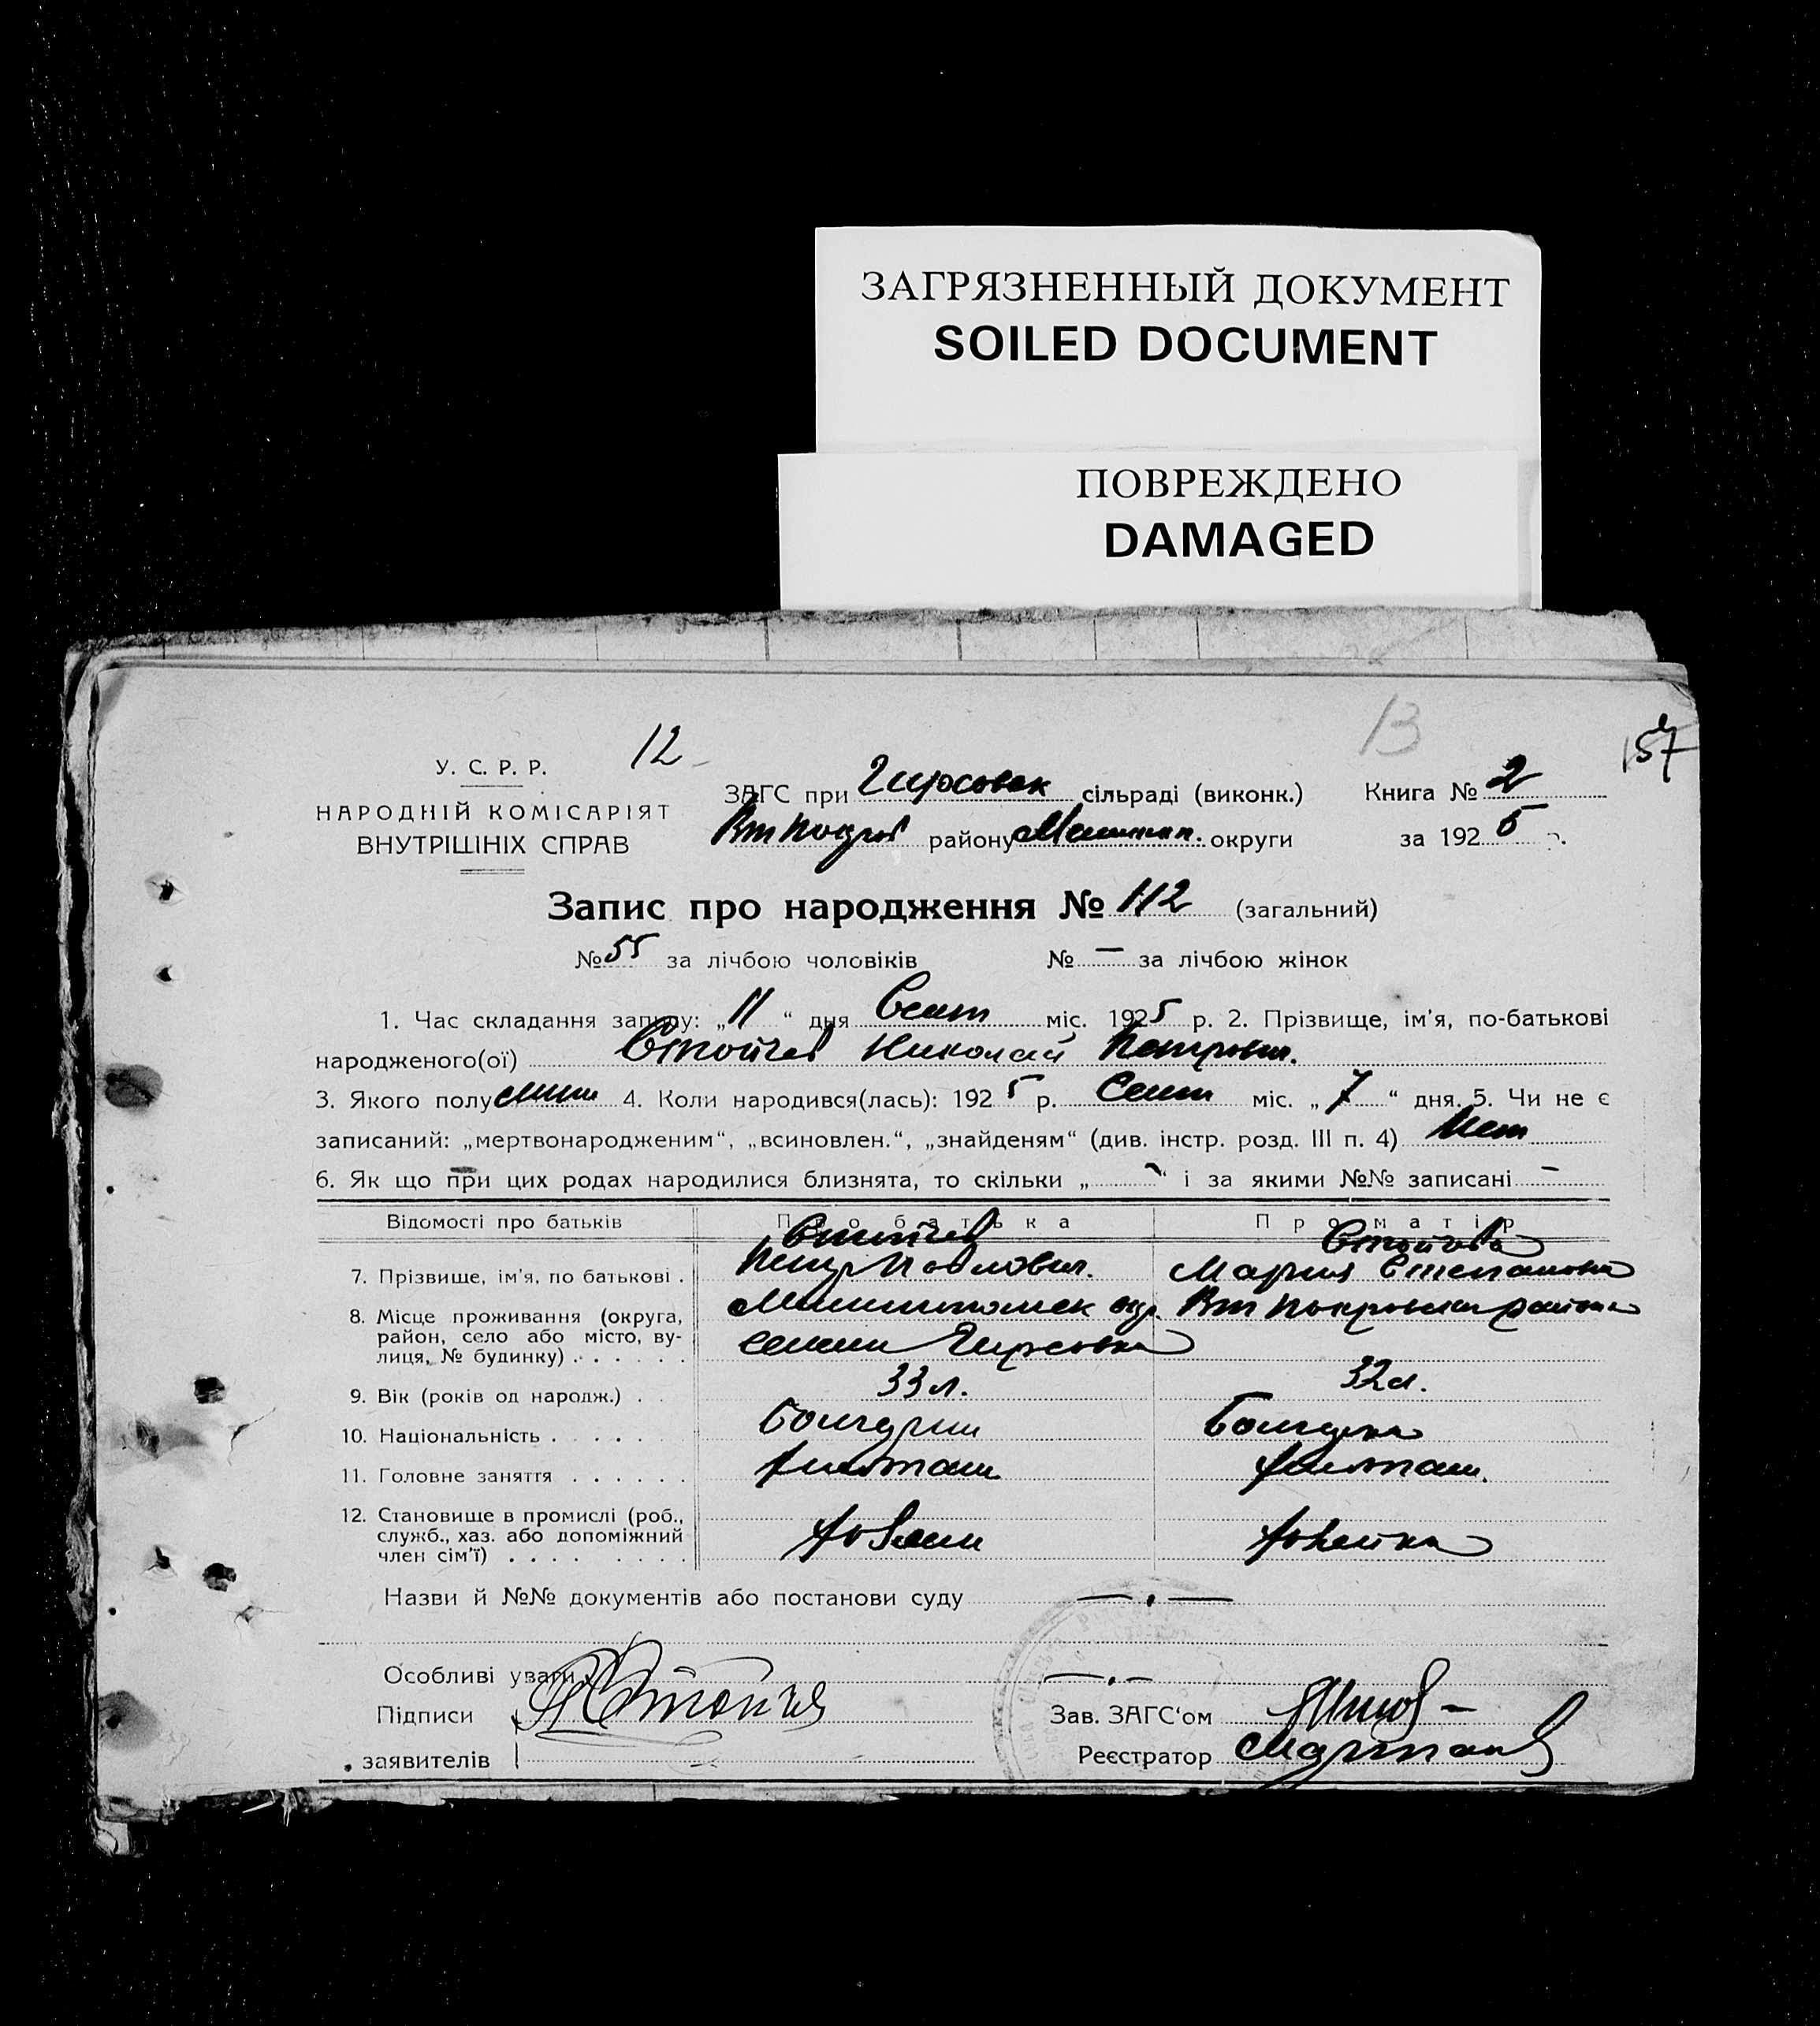 ЗАГРЯЗНЕННЫЙ ДОКУМЕНТ
SOILED DOCUMENT
ПОВРЕЖДЕНО
DAMAGED
13
157
12
У. С. Р. Р.
НАРОДНІЙ КОМІСАРІЯТ
ВНУТРІШНІХ СПРАВ
ЗАГС при Гирсовск сільраді (виконк.) Книга № 2
району округи за 1925 р.
Запис про народження № 112 (загальний)
№ 55 за лічбою чоловіків № — за лічбою жінок
1. Час складання запису: „11“ дня Сент міс. 1925 р. 2. Прізвище, ім’я, по-батькові
народженого(ої) Стойчев Николай Петрович.
3. Якого полу 4. Коли народився(лась): 1925 р. Сент міс. „7“ дня. 5. Чи не є
записаний: „мертвонародженим“, „всиновлен.“, „знайденям“ (див. інстр. розд. III п. 4) Нет
6. Як що при цих родах народилися близнята, то скільки „ “ і за якими №№ записані —
Відомості про батьків Про батька Про матір
7. Прізвище, ім’я, по батькові . Стойчев Петр Павлович. Стойчева Мария Степановна
8. Місце проживання (округа,
район, село або місто, ву-
лиця, № будинку) . . . . . . Гирсовка
9. Вік (років од народж.) . . 33 л. 32 л.
10. Національність . . . . . Болгарин Болгарка
11. Головне заняття . . . . . .
12. Становище в промислі (роб.,
служб., хаз. або допоміжний
член сім’ї) . . . . . . . . Хозяин Хозяйка
Назви й №№ документів або постанови суду — . —
Особливі уваги — . —
Підписи Зав. ЗАГС‘ом
заявителів Реєстратор